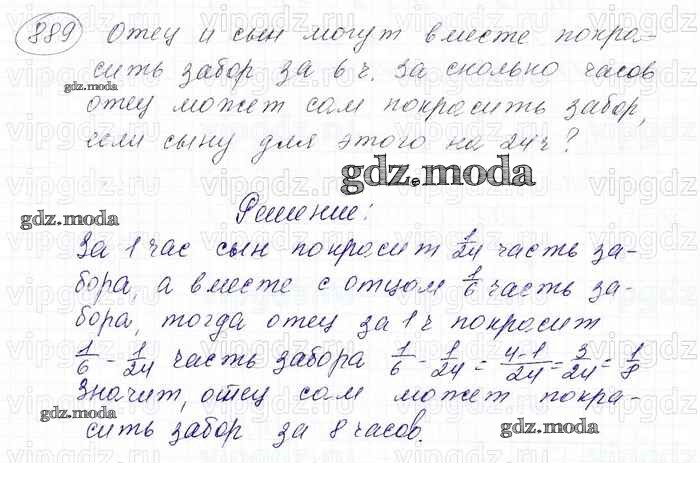 889 Отец и сын могут вместе покра-
сить забор за 6 ч. За сколько часов
отец может сам покрасить забор,
если сыну для этого на 24 ч?
Решение:
За 1 час сын покрасит 1/24 часть за-
бора, а вместе с отцом 1/6 часть за-
бора, тогда отец за 1 ч покрасит
1/6 - 1/24 часть забора 1/6 - 1/24 = 4-1/24 = 3/24 = 1/8
Значит, отец сам может покра-
сить забор за 8 часов.
gdz.moda
gdz.moda
gdz.moda
gdz.moda
gdz.moda
vipgdz.ru